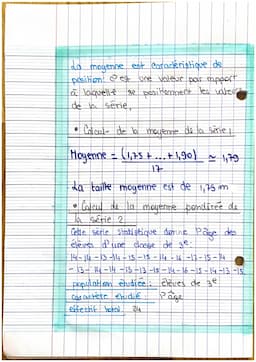 La moyenne est caractéristique de
position: C'est une valeur par rapport
à laquelle se positionnent les valeurs
de la série.
• Calcul de la moyenne de la série 1
Moyenne = (1,75 + ... + 1,90) ≃ 1,79
17
La taille moyenne est de 1,75 m
• Calcul de la moyenne pondérée de
la série 2
Cette série statistique donne l'âge des
élèves d'une classe de 3e:
14-14-13-14-15-15-14-16-13-15-14
-13-14-14-15-13-15-14-16-15-14-13-15
population étudiée: élèves de 3e
caractère étudié: l'âge
effectif total: 24